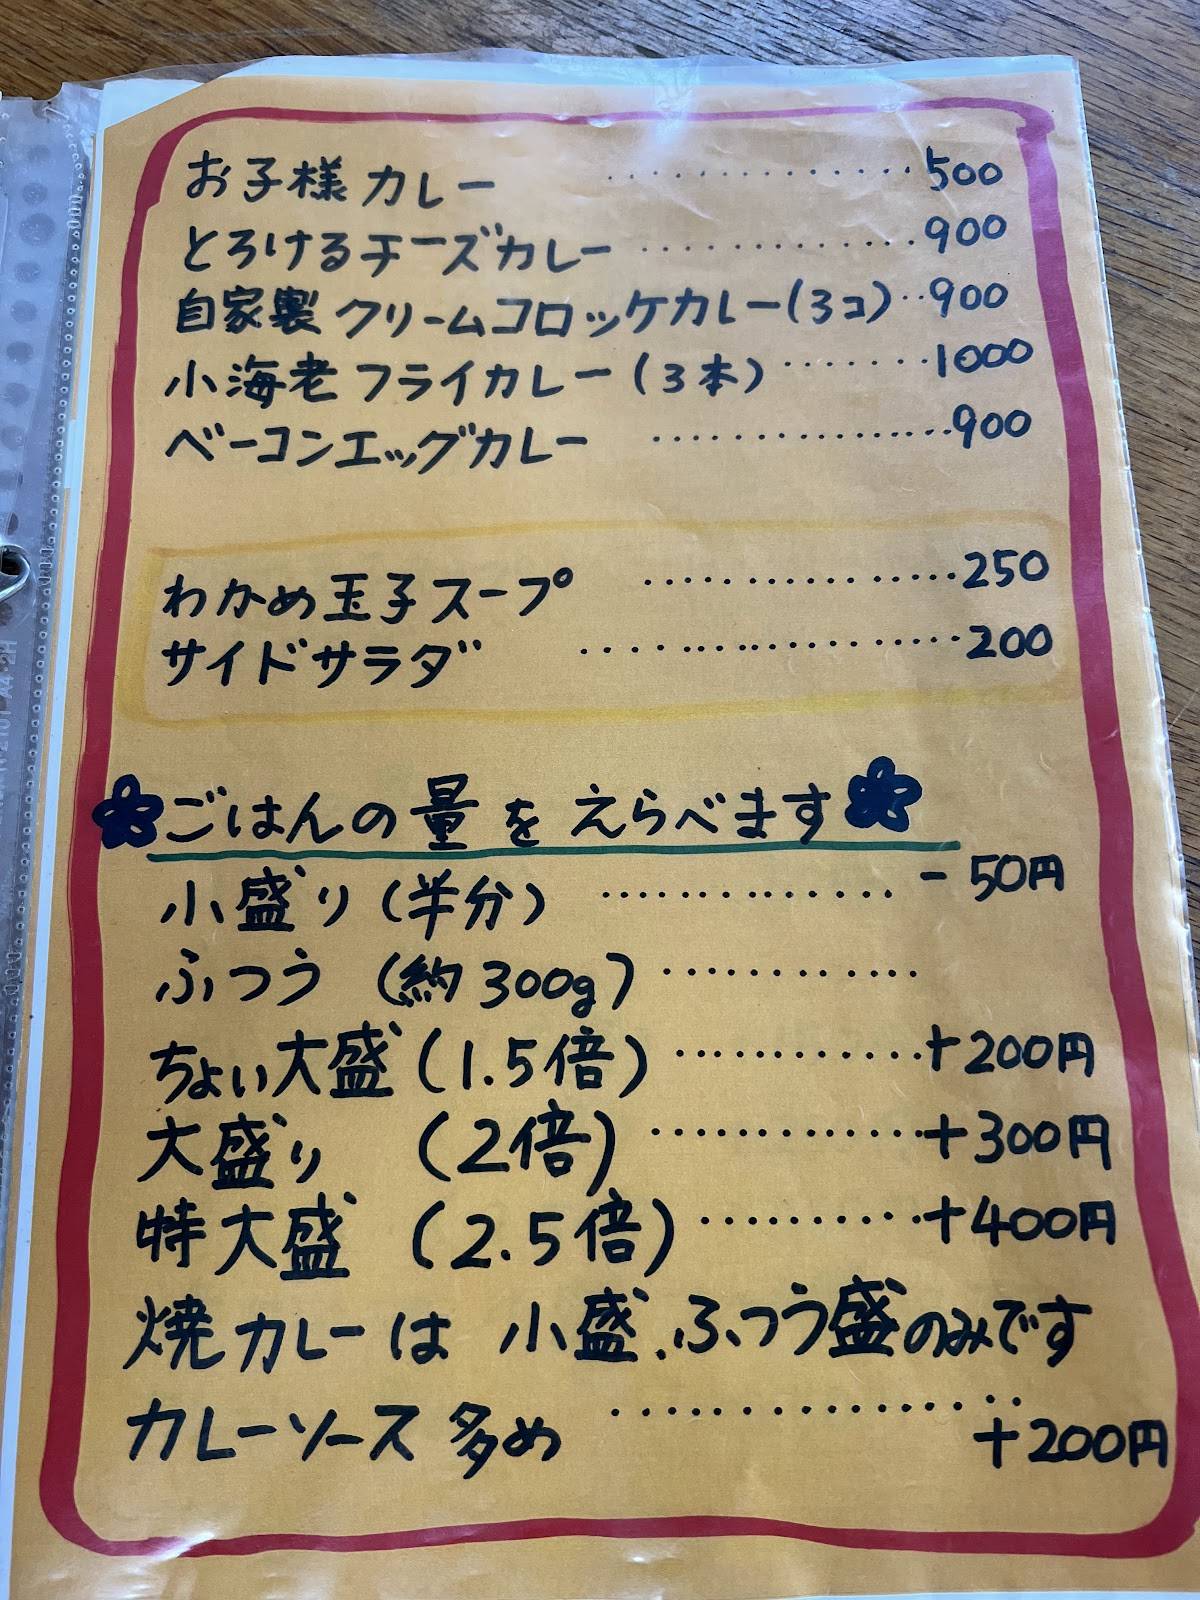 お子様カレー ............... 500
とろけるチーズカレー ............. 900
自家製クリームコロッケカレー(3コ) .. 900
小海老フライカレー(3本) ........ 1000
ベーコンエッグカレー ............... 900
わかめ玉子スープ ................ 250
サイドサラダ .................. 200
ごはんの量をえらべます
小盛り(半分) ............. -50円
ふつう(約300g) .............
ちょい大盛(1.5倍) ............. +200円
大盛り(2倍) .............. +300円
特大盛(2.5倍) .......... +400円
焼カレーは小盛.ふつう盛のみです
カレーソース多め ................ +200円